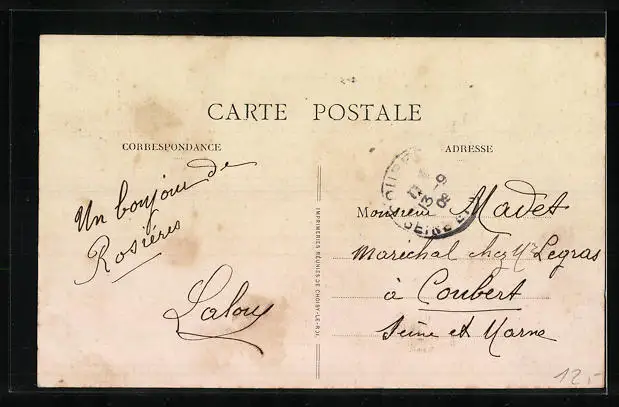 CARTE POSTALE
CORRESPONDANCE
ADRESSE
Un bonjour de
Rosières
Lalou
IMPRIMERIES RÉUNIES DE CHOISY-LE-ROI.
Monsieur Madet
Maréchal chez Mr Legras
à Coubert
Seine et Marne
12.-